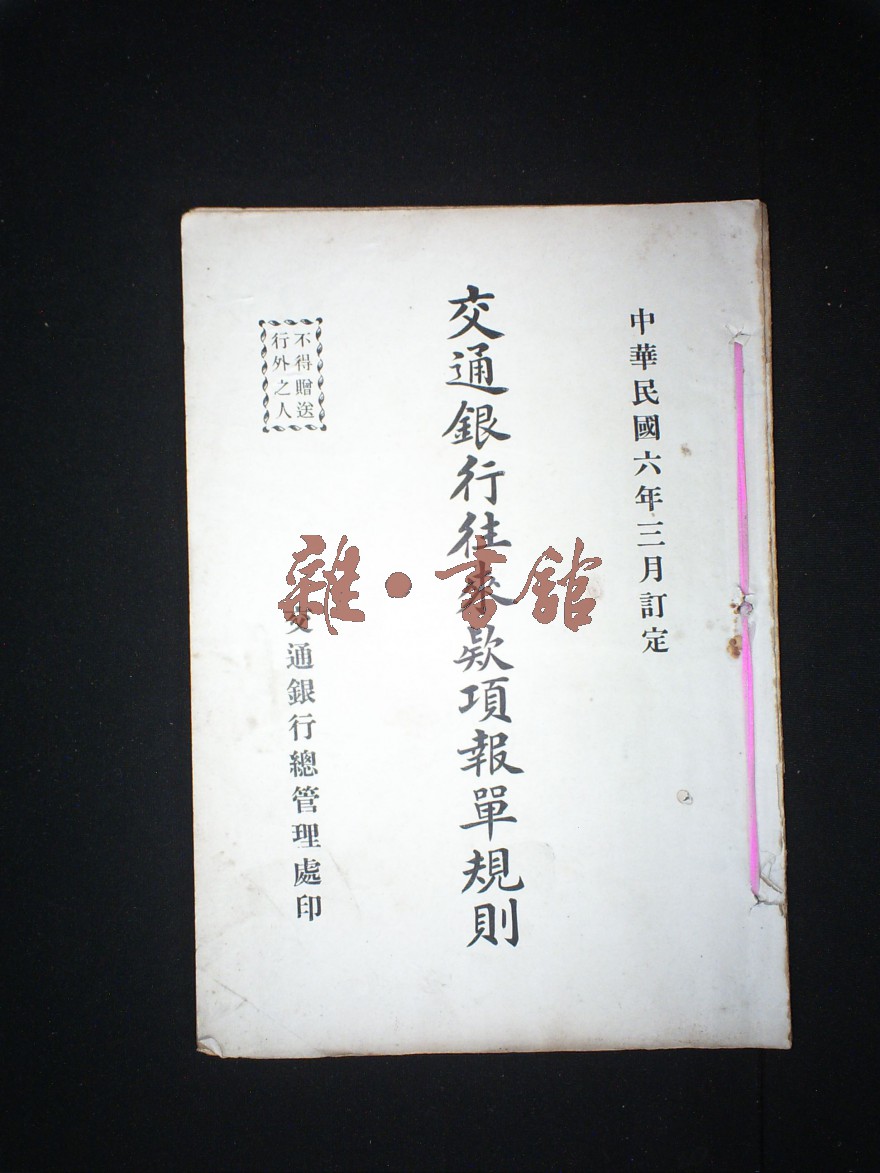 中華民國六年三月訂定
交通銀行往來款項報單規則
不得贈送
行外之人
交通銀行總管理處印
雜·書館